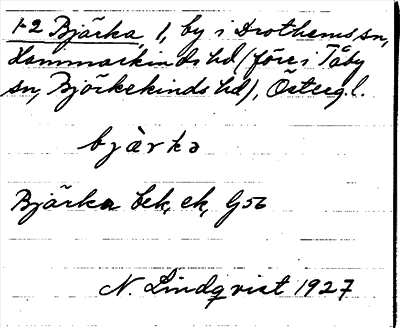 1-2 Bjärka, 1, by i Drothems sn,
Hammarkinds hd (före i Tåby
sn, Björkekinds hd), Östergl.
bjàrka
Bjärka bek, ek, G56
N. Lindqvist 1927